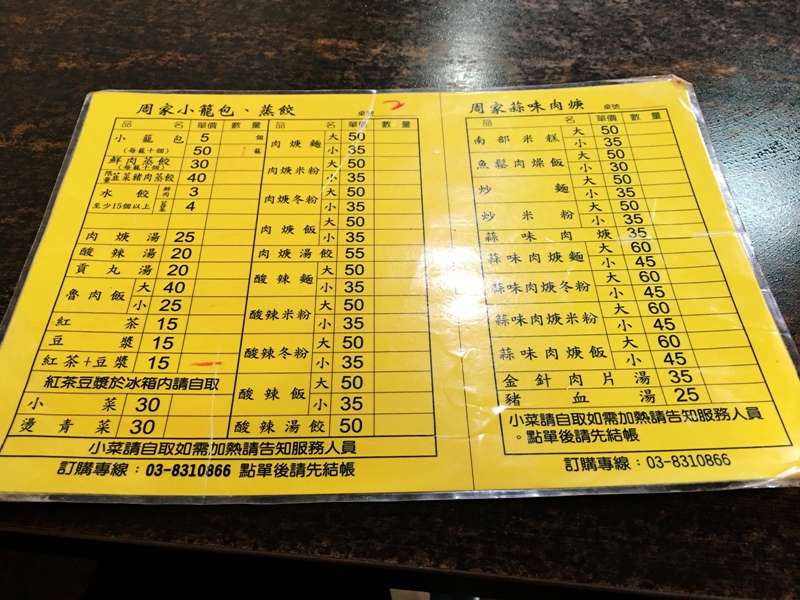 周家小籠包、蒸餃 桌號
品 名 單價 數量 品 名 單價 數量
小籠包 5 個
(每籠十個) 50 籠
鮮肉蒸餃 30
(每籠十個)
限量 韮菜豬肉蒸餃 40
水餃 鮮肉 3
至少15個以上 韮菜 4
肉焿湯 25
酸辣湯 20
貢丸湯 20
魯肉飯 大 40
小 25
紅茶 15
豆漿 15
紅茶+豆漿 15
紅茶豆漿於冰箱內請自取
小菜 30
燙青菜 30
肉焿麵 大 50
小 35
肉焿米粉 大 50
小 35
肉焿冬粉 大 50
小 35
肉焿飯 大 50
小 35
肉焿湯餃 55
酸辣麵 大 50
小 35
酸辣米粉 大 50
小 35
酸辣冬粉 大 50
小 35
酸辣飯 大 50
小 35
酸辣湯餃 50
小菜請自取如需加熱請告知服務人員
訂購專線：03-8310866 點單後請先結帳
周家蒜味肉焿 桌號
品 名 單價 數量
南部米糕 大 50
小 35
魚鬆肉燥飯 大 50
小 30
炒麵 大 50
小 35
炒米粉 大 50
小 35
蒜味肉焿 35
蒜味肉焿麵 大 60
小 45
蒜味肉焿冬粉 大 60
小 45
蒜味肉焿米粉 大 60
小 45
蒜味肉焿飯 大 60
小 45
金針肉片湯 35
豬血湯 25
小菜請自取如需加熱請告知服務人員
。點單後請先結帳
訂購專線：03-8310866